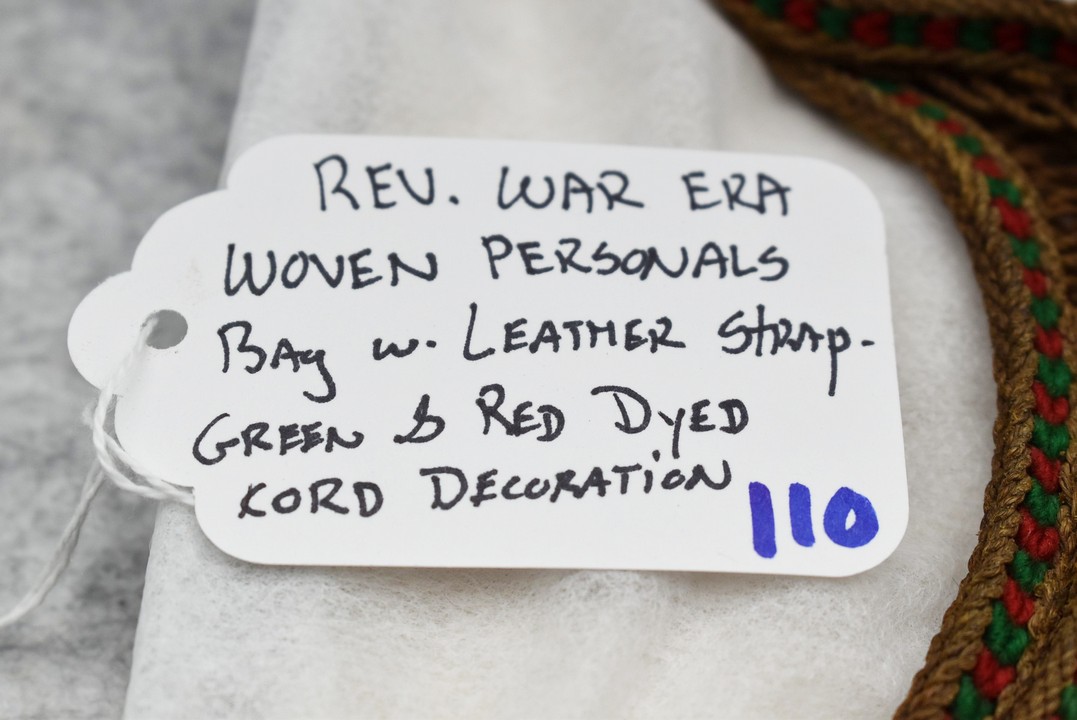 REV. WAR ERA
WOVEN PERSONALS
BAg w. LEATHER Strap.
GREEN & RED DyED
KORD DECORATiON
110